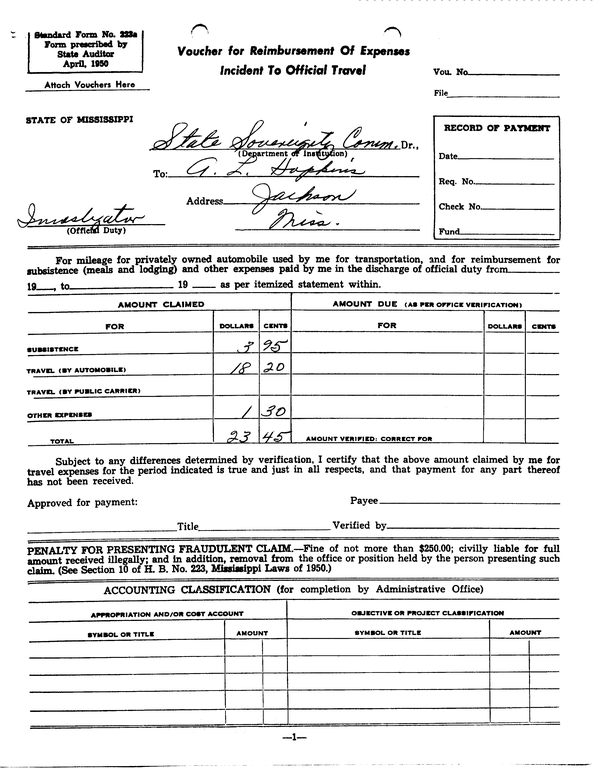 Standard Form No. 222a
Form prescribed by
State Auditor
April, 1950
Attach Vouchers Here
Voucher for Reimbursement Of Expenses
Incident To Official Travel
Vou. No.
File
STATE OF MISSISSIPPI
State Sovereignty Comm. Dr.,
(Department or Institution)
To: A. L. Hopkins
Address Jackson
Miss.
Investigator
(Official Duty)
RECORD OF PAYMENT
Date
Req. No.
Check No.
Fund
For mileage for privately owned automobile used by me for transportation, and for reimbursement for
subsistence (meals and lodging) and other expenses paid by me in the discharge of official duty from
19 , to 19 as per itemized statement within.
AMOUNT CLAIMED AMOUNT DUE (AS PER OFFICE VERIFICATION)
FOR DOLLARS CENTS FOR DOLLARS CENTS
SUBSISTENCE 3 95
TRAVEL (BY AUTOMOBILE) 18 20
TRAVEL (BY PUBLIC CARRIER)
OTHER EXPENSES 1 30
TOTAL 23 45 AMOUNT VERIFIED: CORRECT FOR
Subject to any differences determined by verification, I certify that the above amount claimed by me for
travel expenses for the period indicated is true and just in all respects, and that payment for any part thereof
has not been received.
Approved for payment: Payee
Title Verified by
PENALTY FOR PRESENTING FRAUDULENT CLAIM.—Fine of not more than $250.00; civilly liable for full
amount received illegally; and in addition, removal from the office or position held by the person presenting such
claim. (See Section 10 of H. B. No. 223, Mississippi Laws of 1950.)
ACCOUNTING CLASSIFICATION (for completion by Administrative Office)
APPROPRIATION AND/OR COST ACCOUNT OBJECTIVE OR PROJECT CLASSIFICATION
SYMBOL OR TITLE AMOUNT SYMBOL OR TITLE AMOUNT
—1—